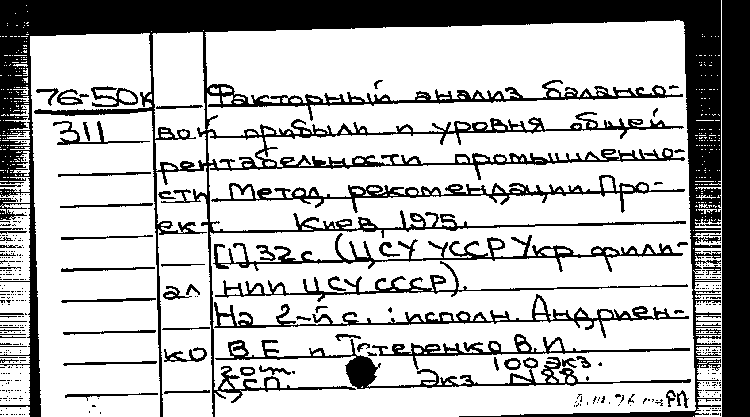 76-50к Факторный анализ балансо-
311 вой прибыли и уровня общей
рентабельности промышленно-
сти. Метод. рекомендации. Про-
ект. Киев, 1975.
[1], 32 с. (ЦСУ УССР Укр. фили-
ал НИИ ЦСУ СССР).
На 2-й с.: исполн. Андриен-
ко В.Е и Тетеренко В.И.
20 от. 100 экз.
ДСП. Экз. N88.
РП